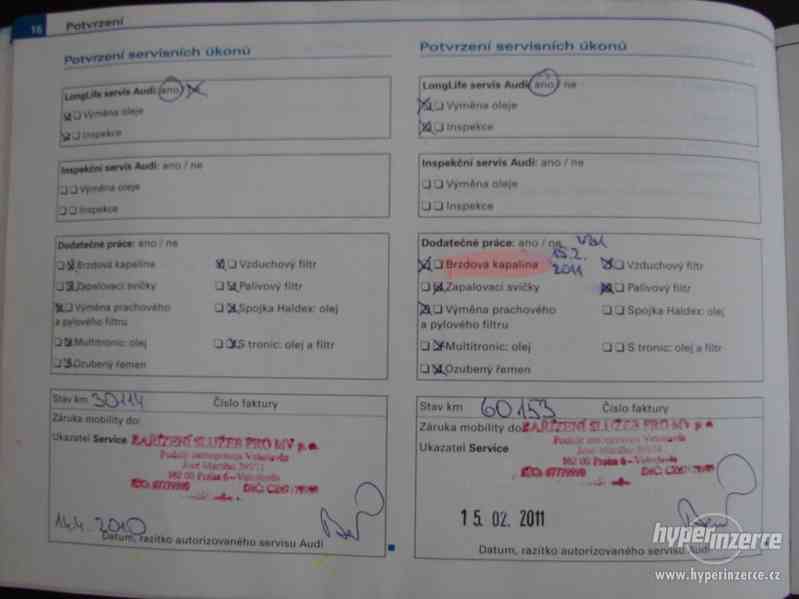 16 Potvrzení
Potvrzení servisních úkonů
LongLife servis Audi: ano
Výměna oleje
Inspekce
Inspekční servis Audi: ano / ne
Výměna oleje
Inspekce
Dodatečné práce: ano / ne
Brzdová kapalina
Vzduchový filtr
Zapalovací svíčky
Palivový filtr
Výměna prachového
a pylového filtru
Spojka Haldex: olej
Multitronic: olej
S tronic: olej a filtr
Ozubený řemen
Stav km 30114
Číslo faktury
Záruka mobility do:
Ukazatel Service
ZAŘÍZENÍ SLUŽEB PRO MV p.o.
162 00 Praha 6 – Veleslavín
14.4. 2010
Datum, razítko autorizovaného servisu Audi
Potvrzení servisních úkonů
LongLife servis Audi: ano / ne
Výměna oleje
Inspekce
Inspekční servis Audi: ano / ne
Výměna oleje
Inspekce
Dodatečné práce: ano / ne
15.2.
2011
Brzdová kapalina
Vzduchový filtr
Zapalovací svíčky
Palivový filtr
Výměna prachového
a pylového filtru
Spojka Haldex: olej
Multitronic: olej
S tronic: olej a filtr
Ozubený řemen
Stav km 60153
Číslo faktury
Záruka mobility do:
ZAŘÍZENÍ SLUŽEB PRO MV p.o.
Ukazatel Service
162 00 Praha 6 – Veleslavín
15. 02. 2011
Datum, razítko autorizovaného servisu Audi
hyperinzerce
www.hyperinzerce.cz